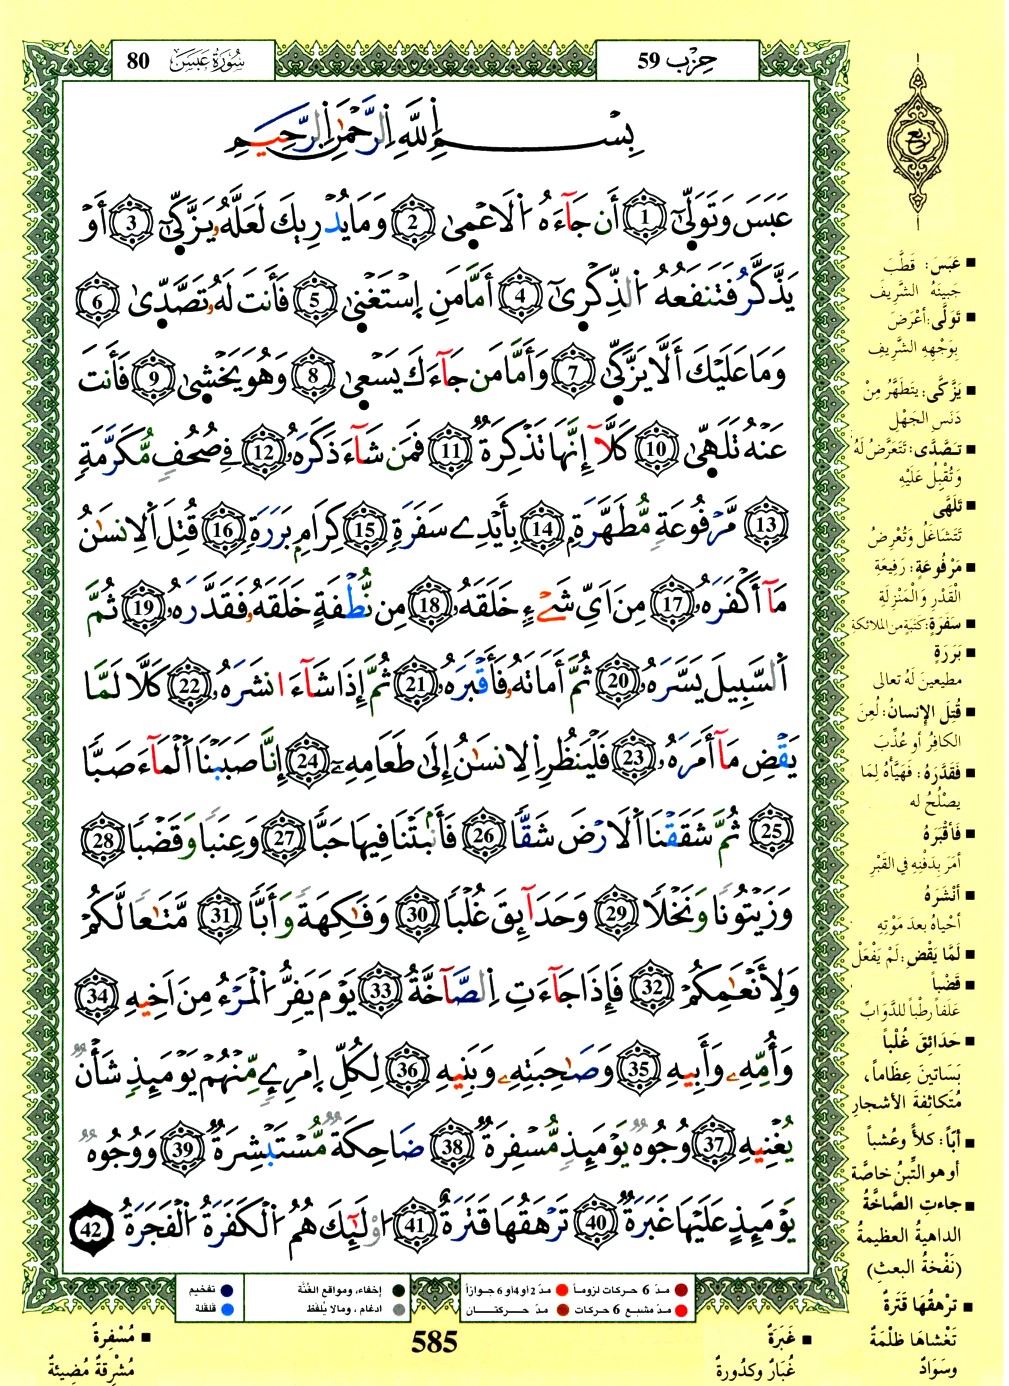 حِزْب 59
سُورَة عَبَسَ 80
رُبع
بِسْمِ اِ۬للَّهِ اِ۬لرَّحْمَٰنِ اِ۬لرَّحِيمِ
عَبَسَ وَتَوَلّ۪ىٰٓ 1 أَن جَآءَهُ اُ۬لَاعْم۪ىٰ 2 وَمَا يُدْرِيكَ لَعَلَّهُۥ يَزَّكّ۪ىٰٓ 3 أَوْ
يَذَّكَّرُ فَتَنفَعُهُ اُ۬لذِّكْر۪ىٰٓ 4 أَمَّا مَنِ اِ۪سْتَغْن۪ىٰ 5 فَأَنتَ لَهُۥ تَصَّدّ۪ىٰ 6
وَمَا عَلَيْكَ أَلَّا يَزَّكّ۪ىٰ 7 وَأَمَّا مَن جَآءَكَ يَسْع۪ىٰ 8 وَهُوَ يَخْش۪ىٰ 9 فَأَنتَ
عَنْهُ تَلَهّ۪ىٰ 10 كَلَّآ إِنَّهَا تَذْكِرَةٌ 11 فَمَن شَآءَ ذَكَرَهُۥ 12 فِے صُحُفٍ مُّكَرَّمَةٍ
13 مَّرْفُوعَةٍ مُّطَهَّرَةِۢ 14 بِأَيْدِے سَفَرَةٍ 15 كِرَامِۢ بَرَرَةٍ 16 قُتِلَ اَ۬لِانسَٰنُ
مَآ أَكْفَرَهُۥ 17 مِنَ اَيِّ شَےْءٍ خَلَقَهُۥ 18 مِن نُّطْفَةٍ خَلَقَهُۥ فَقَدَّرَهُۥ 19 ثُمَّ
اَ۬لسَّبِيلَ يَسَّرَهُۥ 20 ثُمَّ أَمَاتَهُۥ فَأَقْبَرَهُۥ 21 ثُمَّ إِذَا شَآءَ انشَرَهُۥ 22 كَلَّا لَمَّا
يَقْضِ مَآ أَمَرَهُۥ 23 فَلْيَنظُرِ اِ۬لِانسَٰنُ إِلَىٰ طَعَامِهِۦٓ 24 إِنَّا صَبَبْنَا اَ۬لْمَآءَ صَبّٗا
25 ثُمَّ شَقَقْنَا اَ۬لَارْضَ شَقّٗا 26 فَأَنۢبَتْنَا فِيهَا حَبّٗا 27 وَعِنَبٗا وَقَضْبٗا 28
وَزَيْتُونٗا وَنَخْلٗا 29 وَحَدَآئِقَ غُلْبٗا 30 وَفَٰكِهَةٗ وَأَبّٗا 31 مَّتَٰعٗا لَّكُمْ
وَلِأَنْعَٰمِكُمْ 32 فَإِذَا جَآءَتِ اِ۬لصَّآخَّةُ 33 يَوْمَ يَفِرُّ اُ۬لْمَرْءُ مِنَ اَخِيهِ 34
وَأُمِّهِۦ وَأَبِيهِ 35 وَصَٰحِبَتِهِۦ وَبَنِيهِ 36 لِكُلِّ اِ۪مْرِےٕٖ مِّنْهُمْ يَوْمَئِذٖ شَأْنٞ
يُغْنِيهِ 37 وُجُوهٞ يَوْمَئِذٖ مُّسْفِرَةٞ 38 ضَاحِكَةٞ مُّسْتَبْشِرَةٞ 39 وَوُجُوهٞ
يَوْمَئِذٍ عَلَيْهَا غَبَرَةٞ 40 تَرْهَقُهَا قَتَرَةٌ 41 اُ۟وْلَٰٓئِكَ هُمُ اُ۬لْكَفَرَةُ اُ۬لْفَجَرَةُ 42
عَبَسَ: قَطَّبَ
جَبينَهُ الشَّريفَ
تَوَلَّى: أعْرَضَ
بِوَجْهِهِ الشَّرِيفِ
يَزَّكَّى: يتَطَهَّرُ مِنْ
دَنَسِ الجَهْلِ
تَصَّدَّى: تَتَعَرَّضُ لَهُ
وَتُقْبِلُ عَلَيْهِ
تَلَهَّى
تَتَشَاغَلُ وَتُعْرِضُ
مَرْفُوعَةٍ: رَفِيعَةِ
القَدْرِ وَالْمَنْزِلَةِ
سَفَرَةٍ: كَتَبَةٍ من الملائكةِ
بَرَرَةٍ
مطيعينَ لَهُ تعالى
قُتِلَ الإنسانُ: لُعِنَ
الكافرُ أو عُذِّبَ
فَقَدَّرَهُ: فَهَيَّأهُ لِمَا
يصْلُحُ له
فَأقْبَرَهُ
أمَرَ بِدَفْنِهِ في القَبْرِ
أنْشَرَهُ
أحْياهُ بعدَ مَوْتِهِ
لَمَّا يَقْضِ: لَمْ يَفْعَلْ
قَضْباً
عَلَفاً رطْباً للدَّوَابِّ
حَدَائِقَ غُلْباً
بَسَاتينَ عِظَاماً،
مُتكاثِفةَ الأشجارِ
أبّاً: كلأً وعُشباً
أو هو التِّبنُ خاصَّة
جاءتِ الصَّاخَّةُ
الداهيةُ العظيمةُ
(نَفْخَةُ البعثِ)
ترْهقُهَا قَتَرَةٌ
تَغْشَاهَا ظلْمَةٌ
وسَوَادٌ
مدّ 6 حركات لزوماً مدّ 2 أو 4 أو 6 جوازاً إخفاء، ومواقع الغُنَّة تفخيم
مدّ مشبع 6 حركات مدّ حركتـان ادغام، ومالا يُلفَظ قلقلة
585
غَبَرَةٌ
غُبَارٌ وكدُورةٌ
مُسْفِرَةٌ
مُشْرِقةٌ مُضِيئةٌ